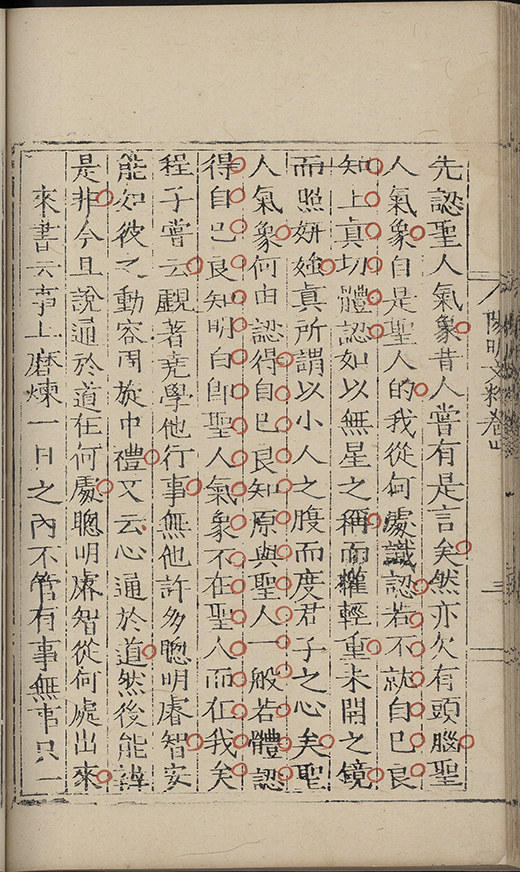 陽明文粹卷四
三
先認聖人氣象昔人嘗有是言矣然亦欠有頭腦聖
人氣象自是聖人的我從何處識認若不就自己良
知上眞切體認如以無星之稱而權輕重未開之鏡
而照妍媸眞所謂以小人之腹而度君子之心矣聖
人氣象何由認得自己良知原與聖人一般若體認
得自己良知明白卽聖人氣象不在聖人而在我矣
程子嘗云覷著堯學他行事無他許多聰明睿智安
能如彼之動容周旋中禮又云心通於道然後能辨
是非今且說通於道在何處聰明睿智從何處出來
來書云事上磨煉一日之內不管有事無事只一